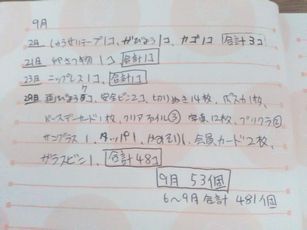 9月
2日 しゅうせいテープ1コ、がびょう1コ、カゴ1コ 合計3コ
21日 やさつ物 1コ 合計1コ
23日 ニップレス1コ、合計1コ
29日 画びょう7コ、安全ピン2コ、切りぬき14枚、パスカ1枚、
バースデーカード1枚、クリアファイル③、写真12枚、プリクラ②
サングラス1、タッパ1、やすり1、会員カード2枚、
ガラスビン1、合計48コ
9月 53個
6～9月合計 481個